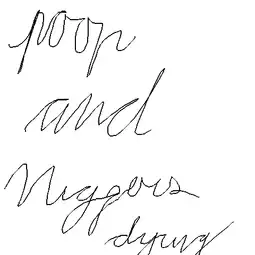 poop
and
niggers
dying